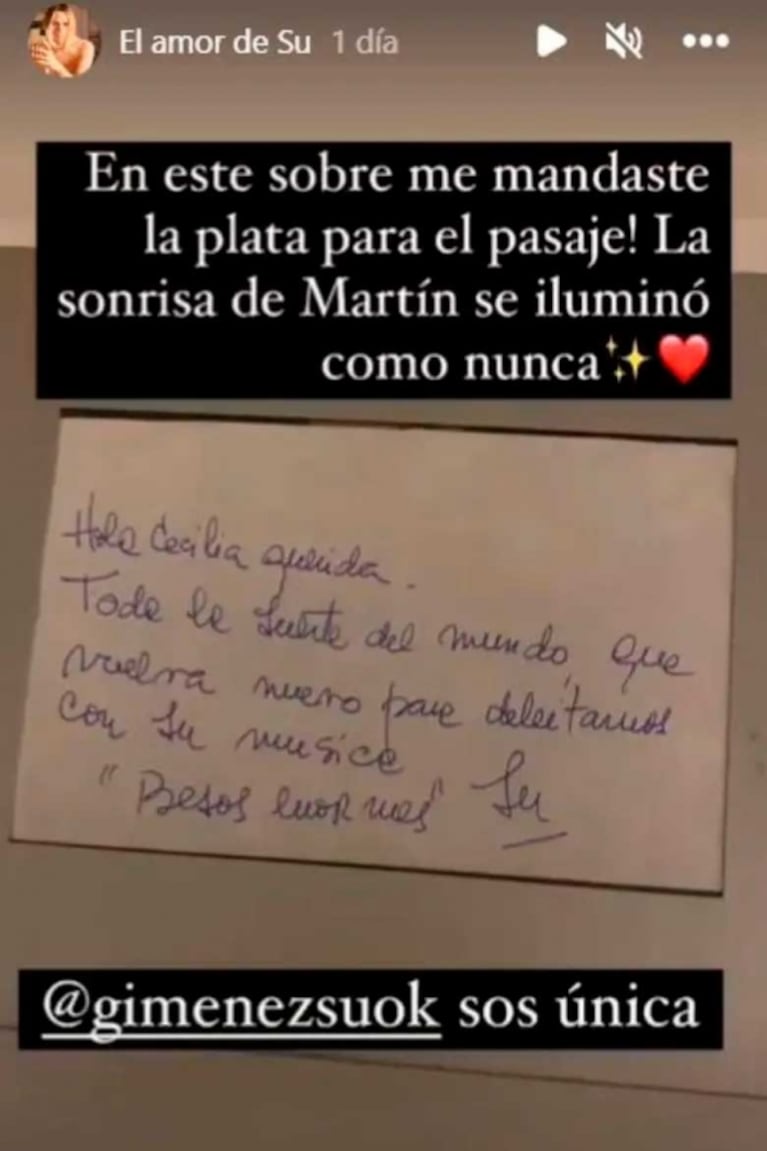 El amor de Su 1 día
En este sobre me mandaste
la plata para el pasaje! La
sonrisa de Martín se iluminó
como nunca✨❤️
Hola Cecilia querida.
Toda la suerte del mundo, que
vuelva nuevo para deleitarnos
con su musica
"Besos enormes" Su
@gimenezsuok sos única